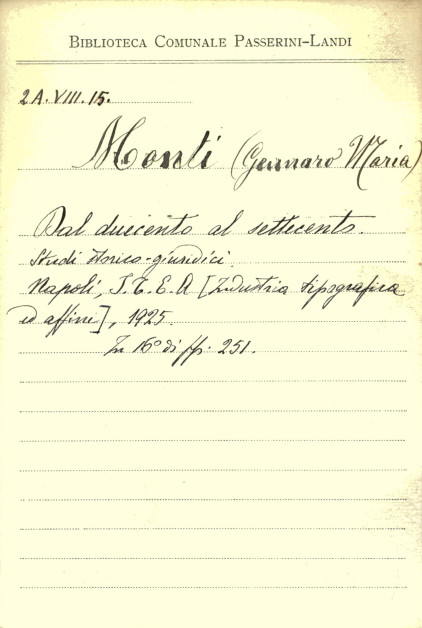 BIBLIOTECA COMUNALE PASSERINI-LANDI
2A.VIII.15.
Monti (Gennaro Maria)
Dal duecento al settecento.
Studi storico-giuridici.
Napoli, I.T.E.A [Industria tipografica
ed affini], 1925.
In 16° di pp. 251.